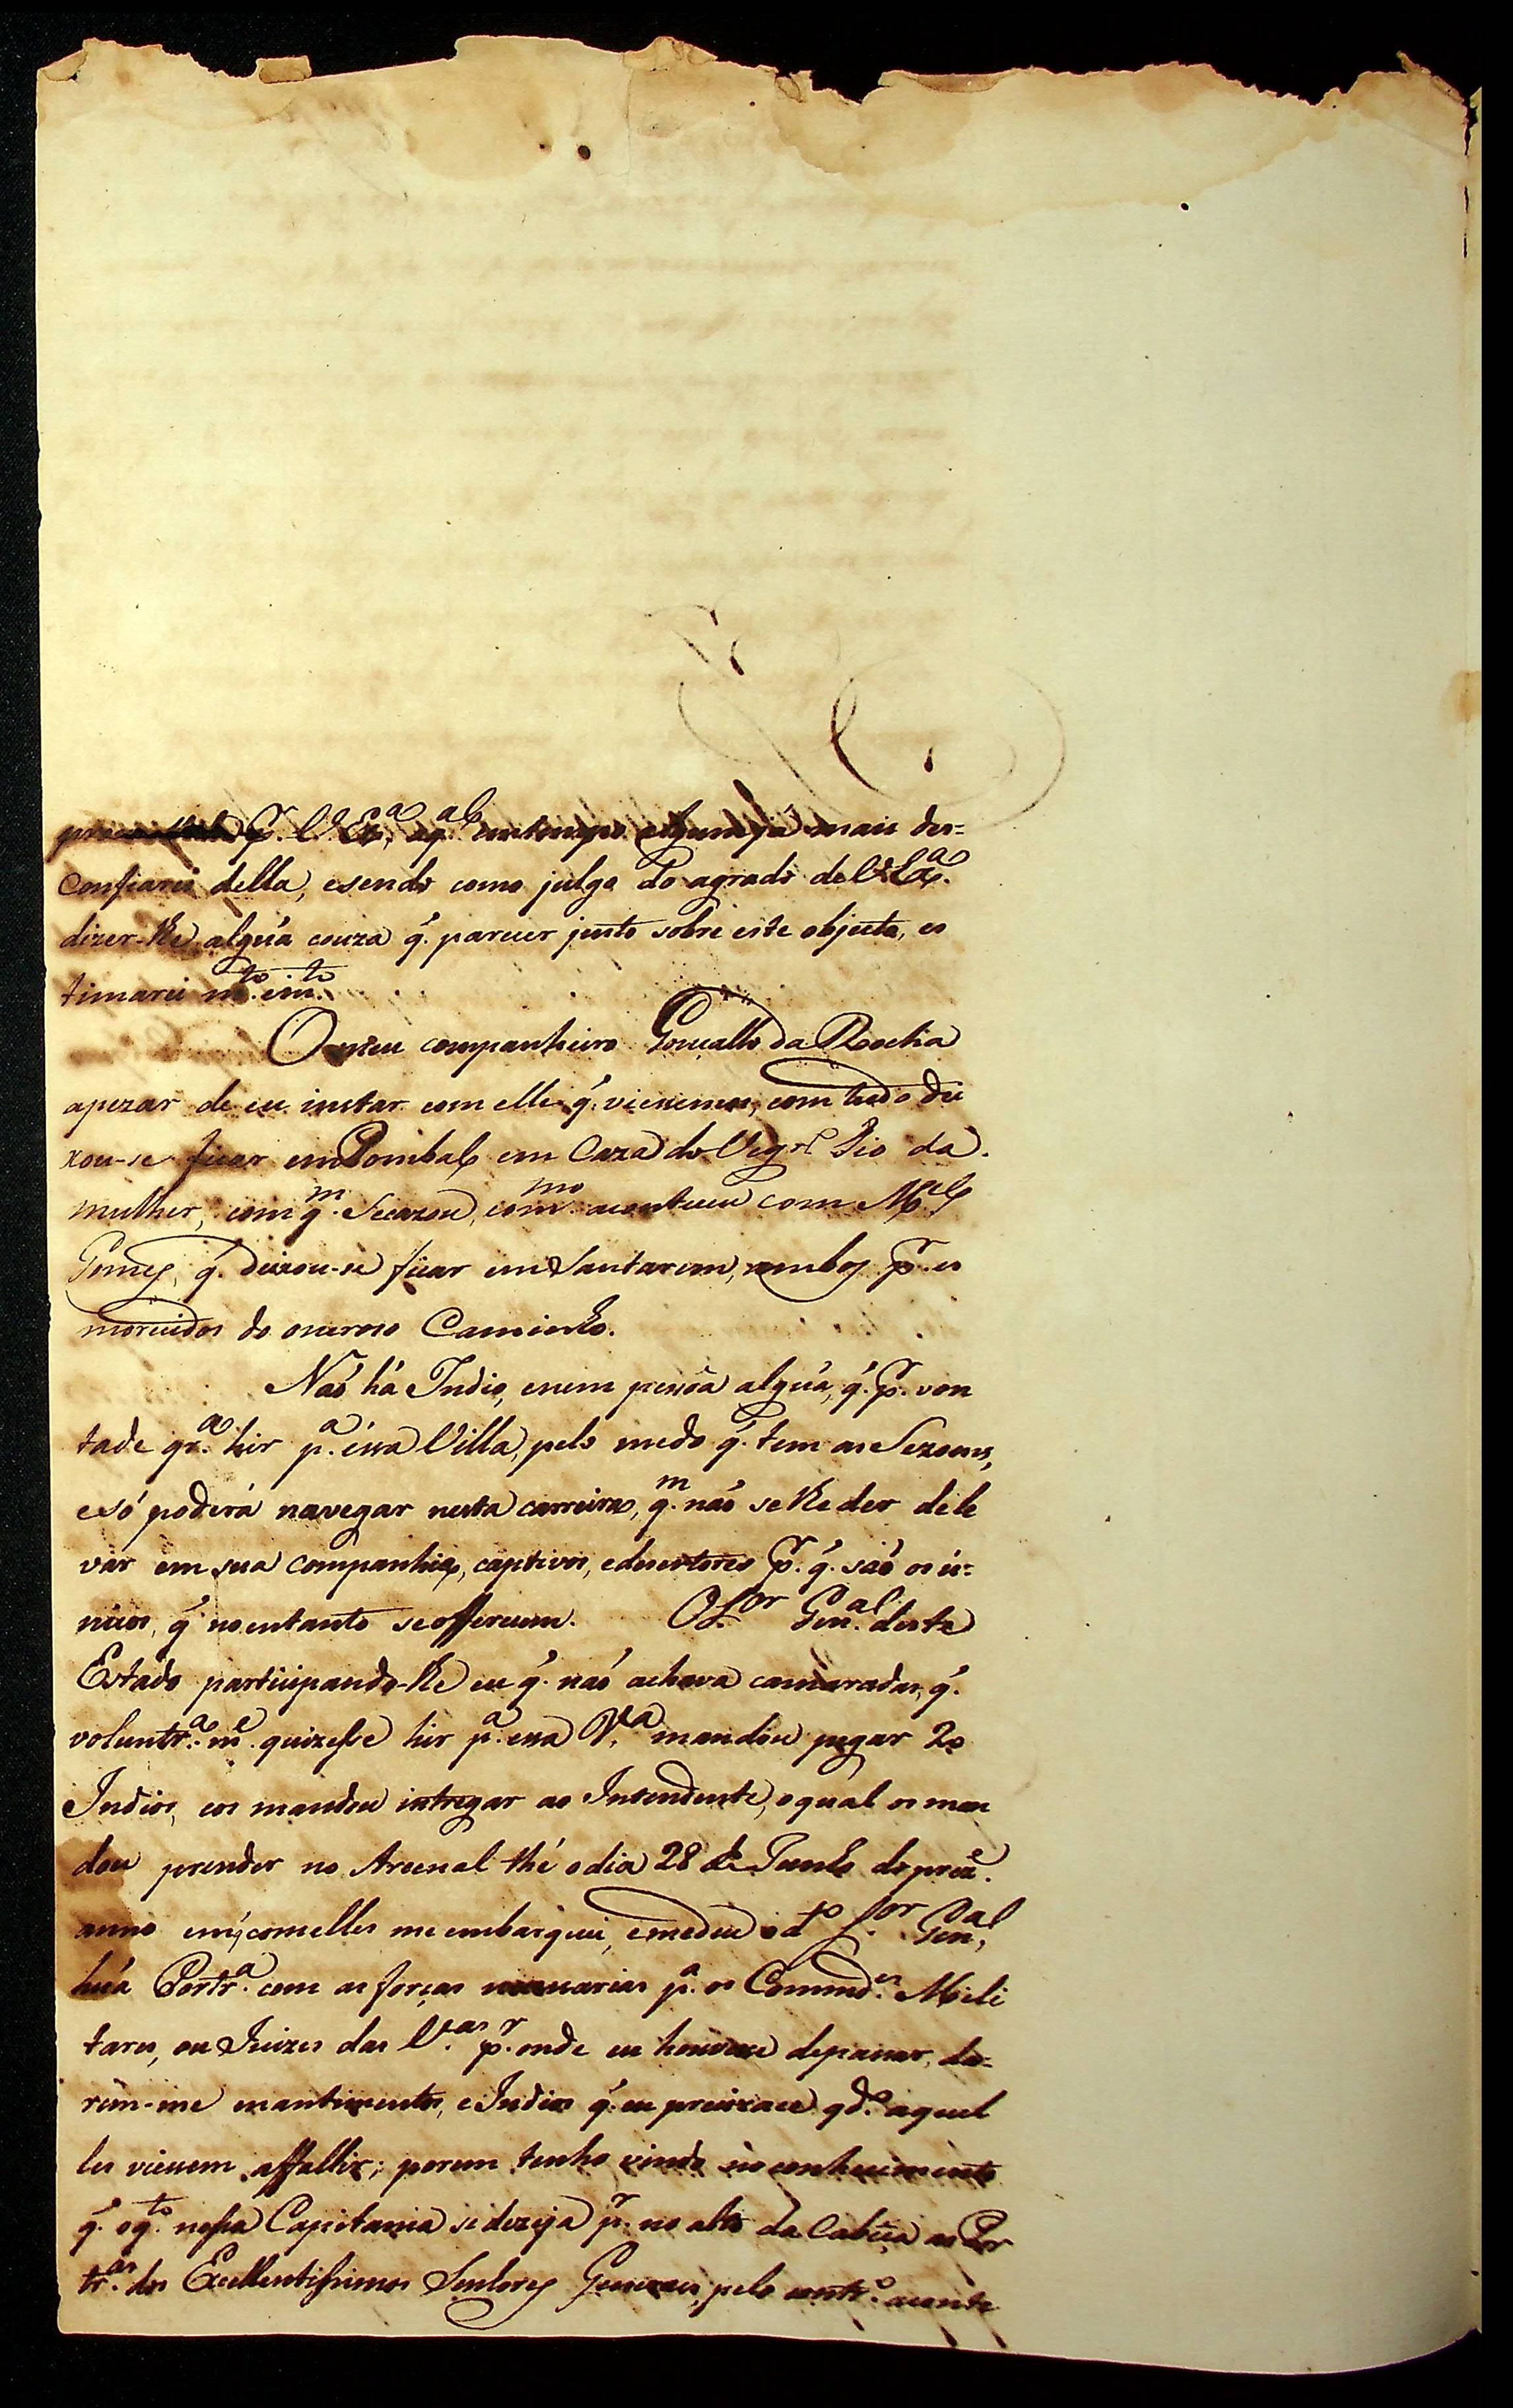 p.r V Ex.ª aq.al em tempo algum já mais des=
confiarei della, e sendo como julgo do agrado de V. Ex.ª
dizer-lhe algũa couza q̃. parecer justo sobre este objecto, es
timarei m.to e m.to.
O meu companheiro Goncallo da Rocha
apezar de eu instar com elle q̃. viessemos, com tudo dei
xou-se ficar em Pombal em Caza do Vigr.º Tio da
mulher, com q.m se cazou, com.mo aconteceu com M.el
Gomes, q̃. deixou-se ficar em Santarem, ambos p.r es
morecidos do oneroso Caminho.
Naõ há Indio, e nem pessôa algũa, q̃. p.r von
tade qr.ª hir p.ª éssa Villa, pelo medo q̃. tem as Sezoens,
e só poderá navegar nesta carreira, q.m naõ se lhe der de le
var em sua companhia, captivos, e desertores p.r q̃. saõ os ú=
nicos, q̃ no entanto se offerecem. O S.or Gen.al deste
Estado participando-lhe eu q̃. naõ achava camaradas, q̃.
voluntr.ª m.e quizesse hir p.ª essa V.ª mandou pegar 20
Indios, e os mandou intregar ao Intendente, o qual os man
dou prender no Arcenal thé o dia 28 de Junho do prez.e
anno em q̃ com elles me embarquei, e me deu o d.to S.or Gen.al
hũa Portr.ª com as forças necessarias p.ª os Commd.es Mili
tares, ou Juizes das V.as p.r onde eu houvesse de passar, da=
rem-me mantimentos, e Indios q̃. eu precizace qd.º aquel
les viessem affallir; porem tenho vindo no conhecimento
q̃. o q.to nessa Capitania se dezeja p.r no alto da Cabeça as Por
tr.as dos Excellentissimos Senhores Generaes, pelo contr.º aconte